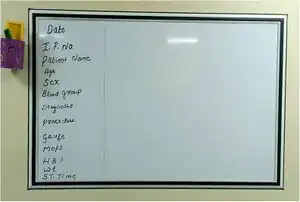 Date
I.P. No.
Patient Name
Age
Sex
Blood group
Diagnosis
procedure
Gauze
Mops
H & I
wt
ST. Time